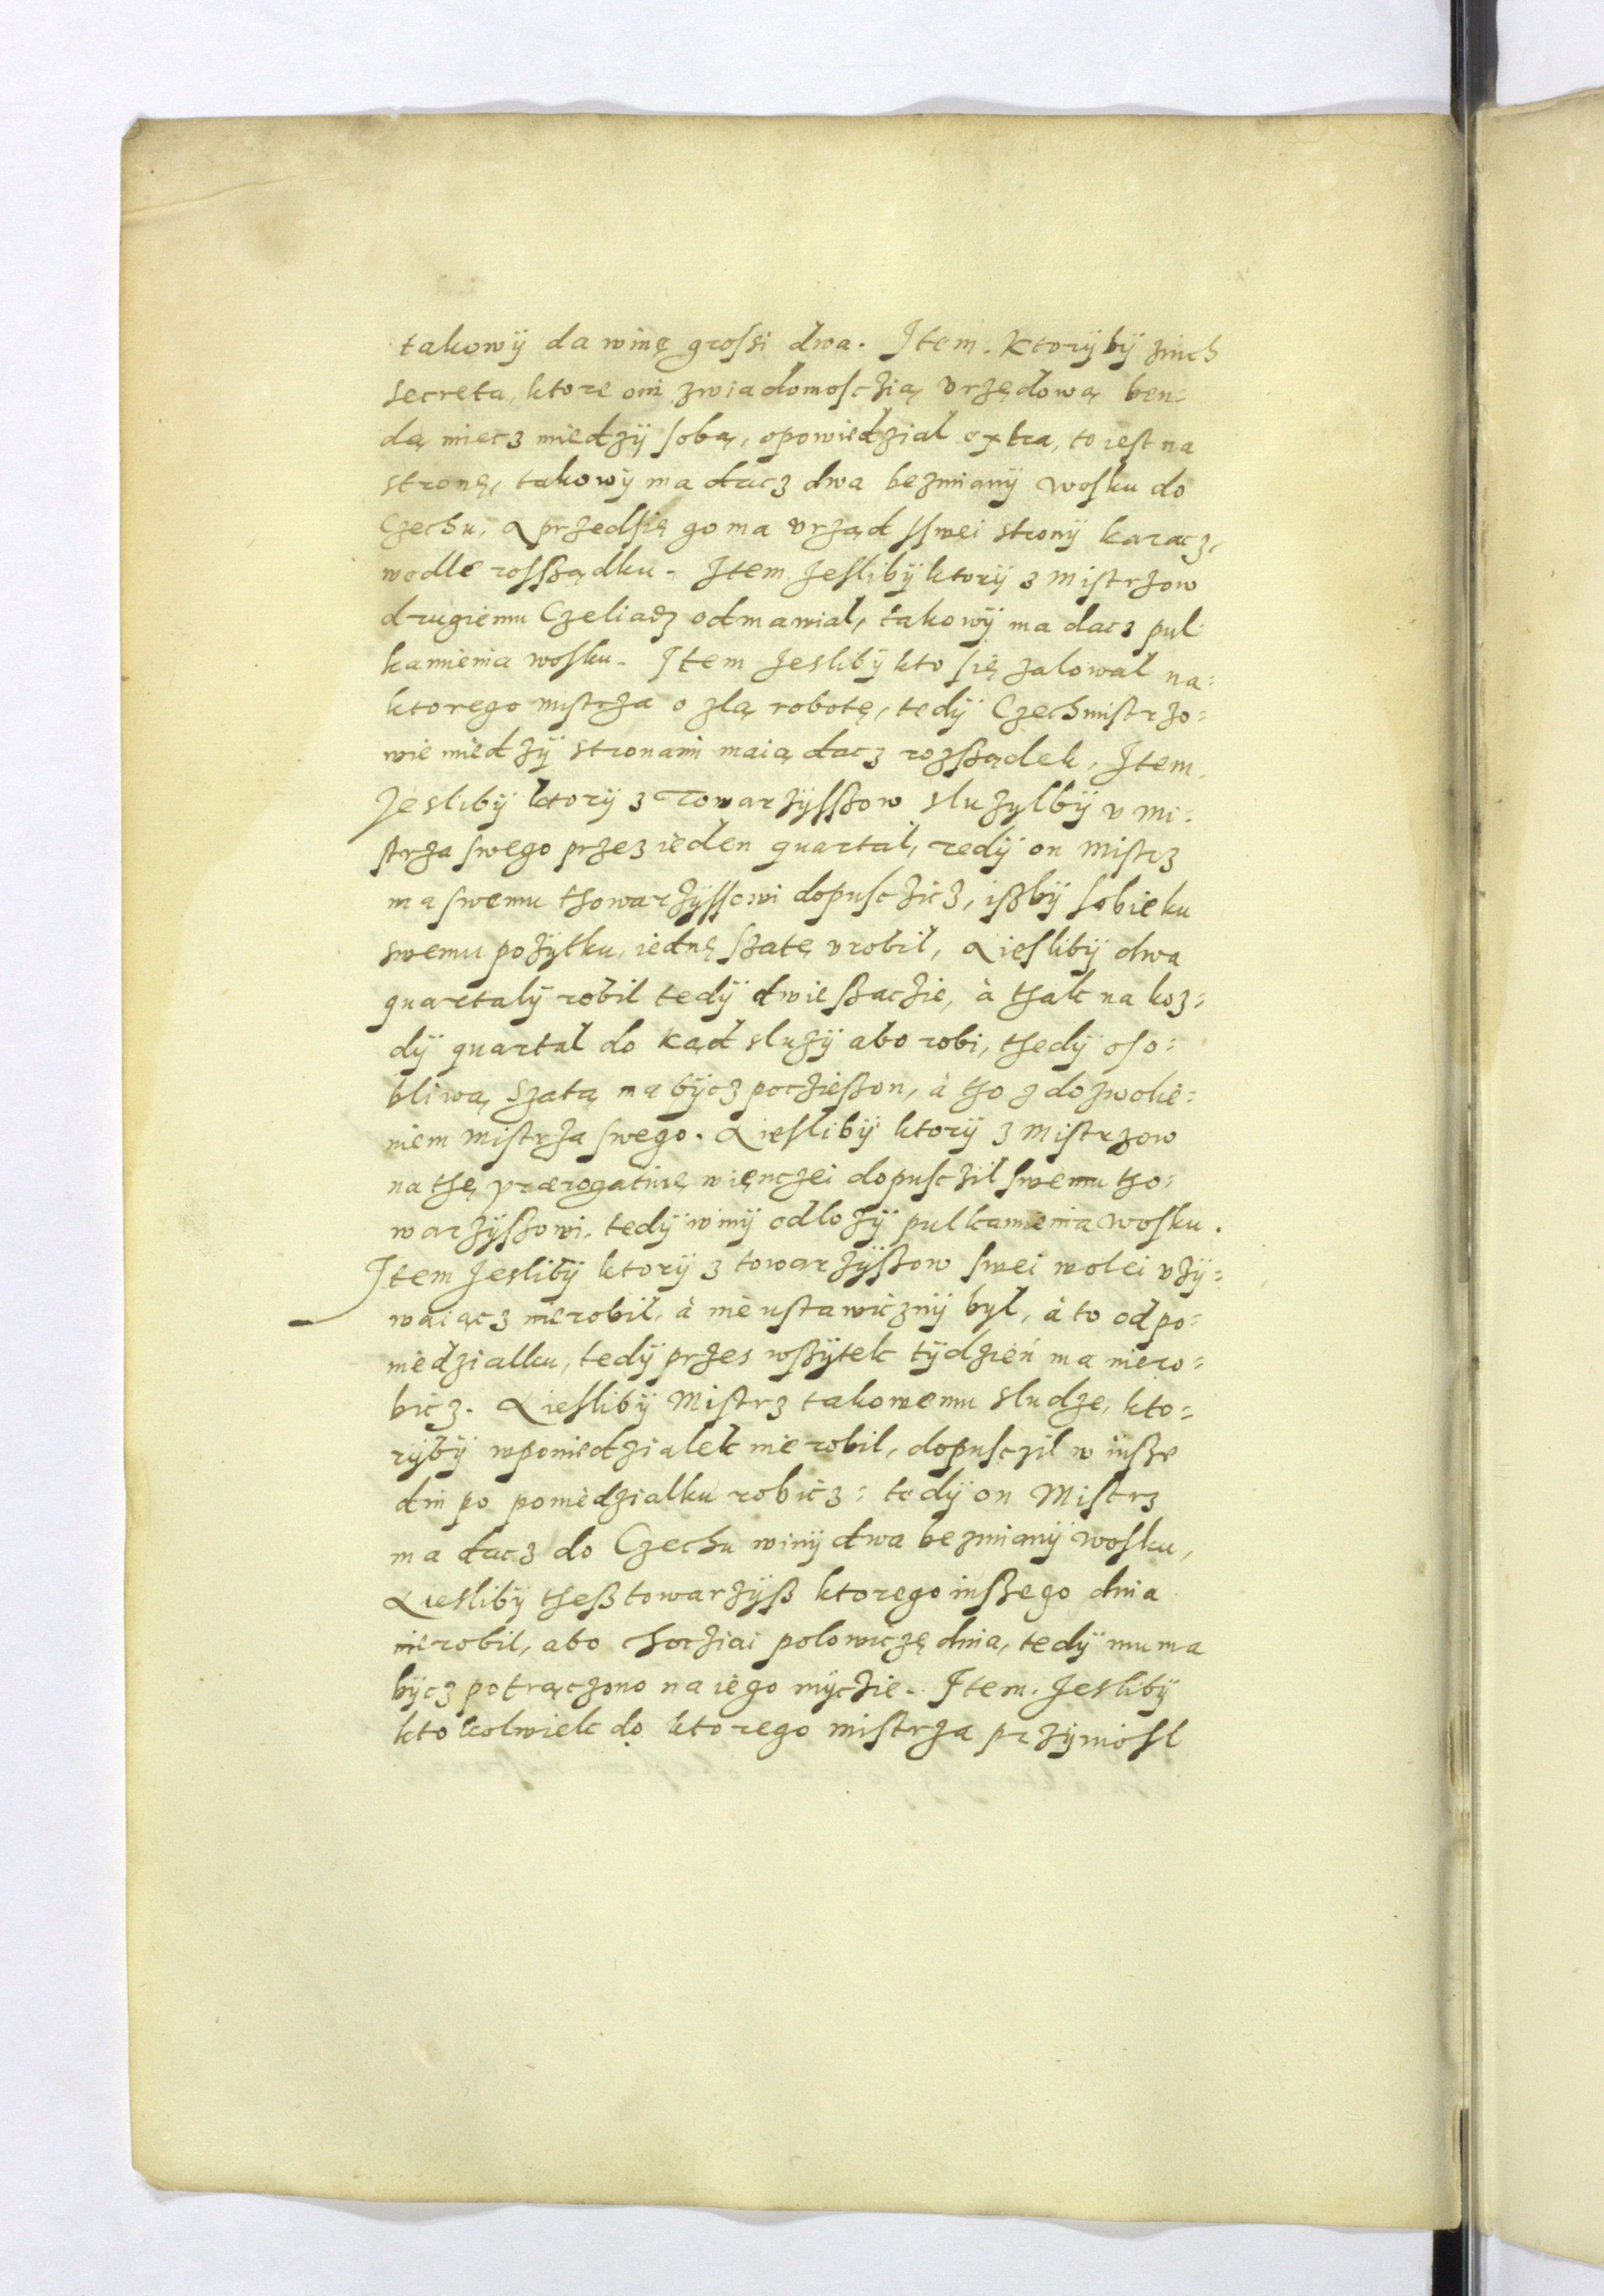 takowÿ da winę grossi dwa. Item. Ktorÿbÿ znich
secreta, ktore oni zwiadomosczią vrzędową ben=
dą miecz miedzÿ sobą, opowiedzial extra, to iest na
stronę, takowÿ ma dacz dwa bezmianÿ wosku do
Czechu, & przedsię go ma vrząd sswei stronÿ karacz,
wedle rosßądku. Item. Jeslibÿ ktorÿ z Mistrzow
drugiemu Czeliadz odmawial, takowÿ ma dacz pul
kamienia wosku. Item Jeslibÿ kto się zalowal na=
ktorego mistrza o zlą robotę, tedÿ Czechmistrzo=
wie miedzÿ stronami maią dacz rozsßądek, Item,
Jeslibÿ ktorÿ z Towarzÿsszow sluzylbÿ v Mi=
strza swego przez ieden quartal, tedÿ on Mistrz
ma swemu thowarzÿssowi dopusczicz, ißbÿ sobie ku
swemu pozÿtku, iednę szatę vrobil, & ieslibÿ dwa
quartalÿ robil tedÿ dwie ßaczie, à thak na koz=
dÿ quartal do kąd sluzÿ abo robi, thedÿ oso=
bliwą szatą ma bÿcz poczießon, à tho z dozwole=
niem mistrza swego. & ieslibÿ ktorÿ z Mistrzow
na thę prærogatiwę więnczei dopusczil swemu tho=
warzÿszowi, tedÿ winÿ odlozÿ pul kamienia wosku.
Item Jeslibÿ ktorÿ z towarzÿßow swei wolei vzÿ=
waiącz nierobil, à nieustawicznÿ byl, à to od po=
niedzialku, tedÿ przes wßÿtek tÿdzień ma niero=
bicz. & ieslibÿ Mistrz takowemu sludze, kto=
rÿbÿ wponiedzialek nierobil, dopusczil w insze
dni po poniedzialku robicz: tedÿ on Mistrz
ma dacz do Czechu winÿ dwa bezmianÿ wosku,
& ieslibÿ theß towarzÿß ktorego inßego dnia
nierobil, abo choCziai polowiczę dnia, tedÿ mu ma
bÿcz potrączono na iego mÿczie. Item. Jeslibÿ
ktokolwiek do ktorego mistrza przÿniosl